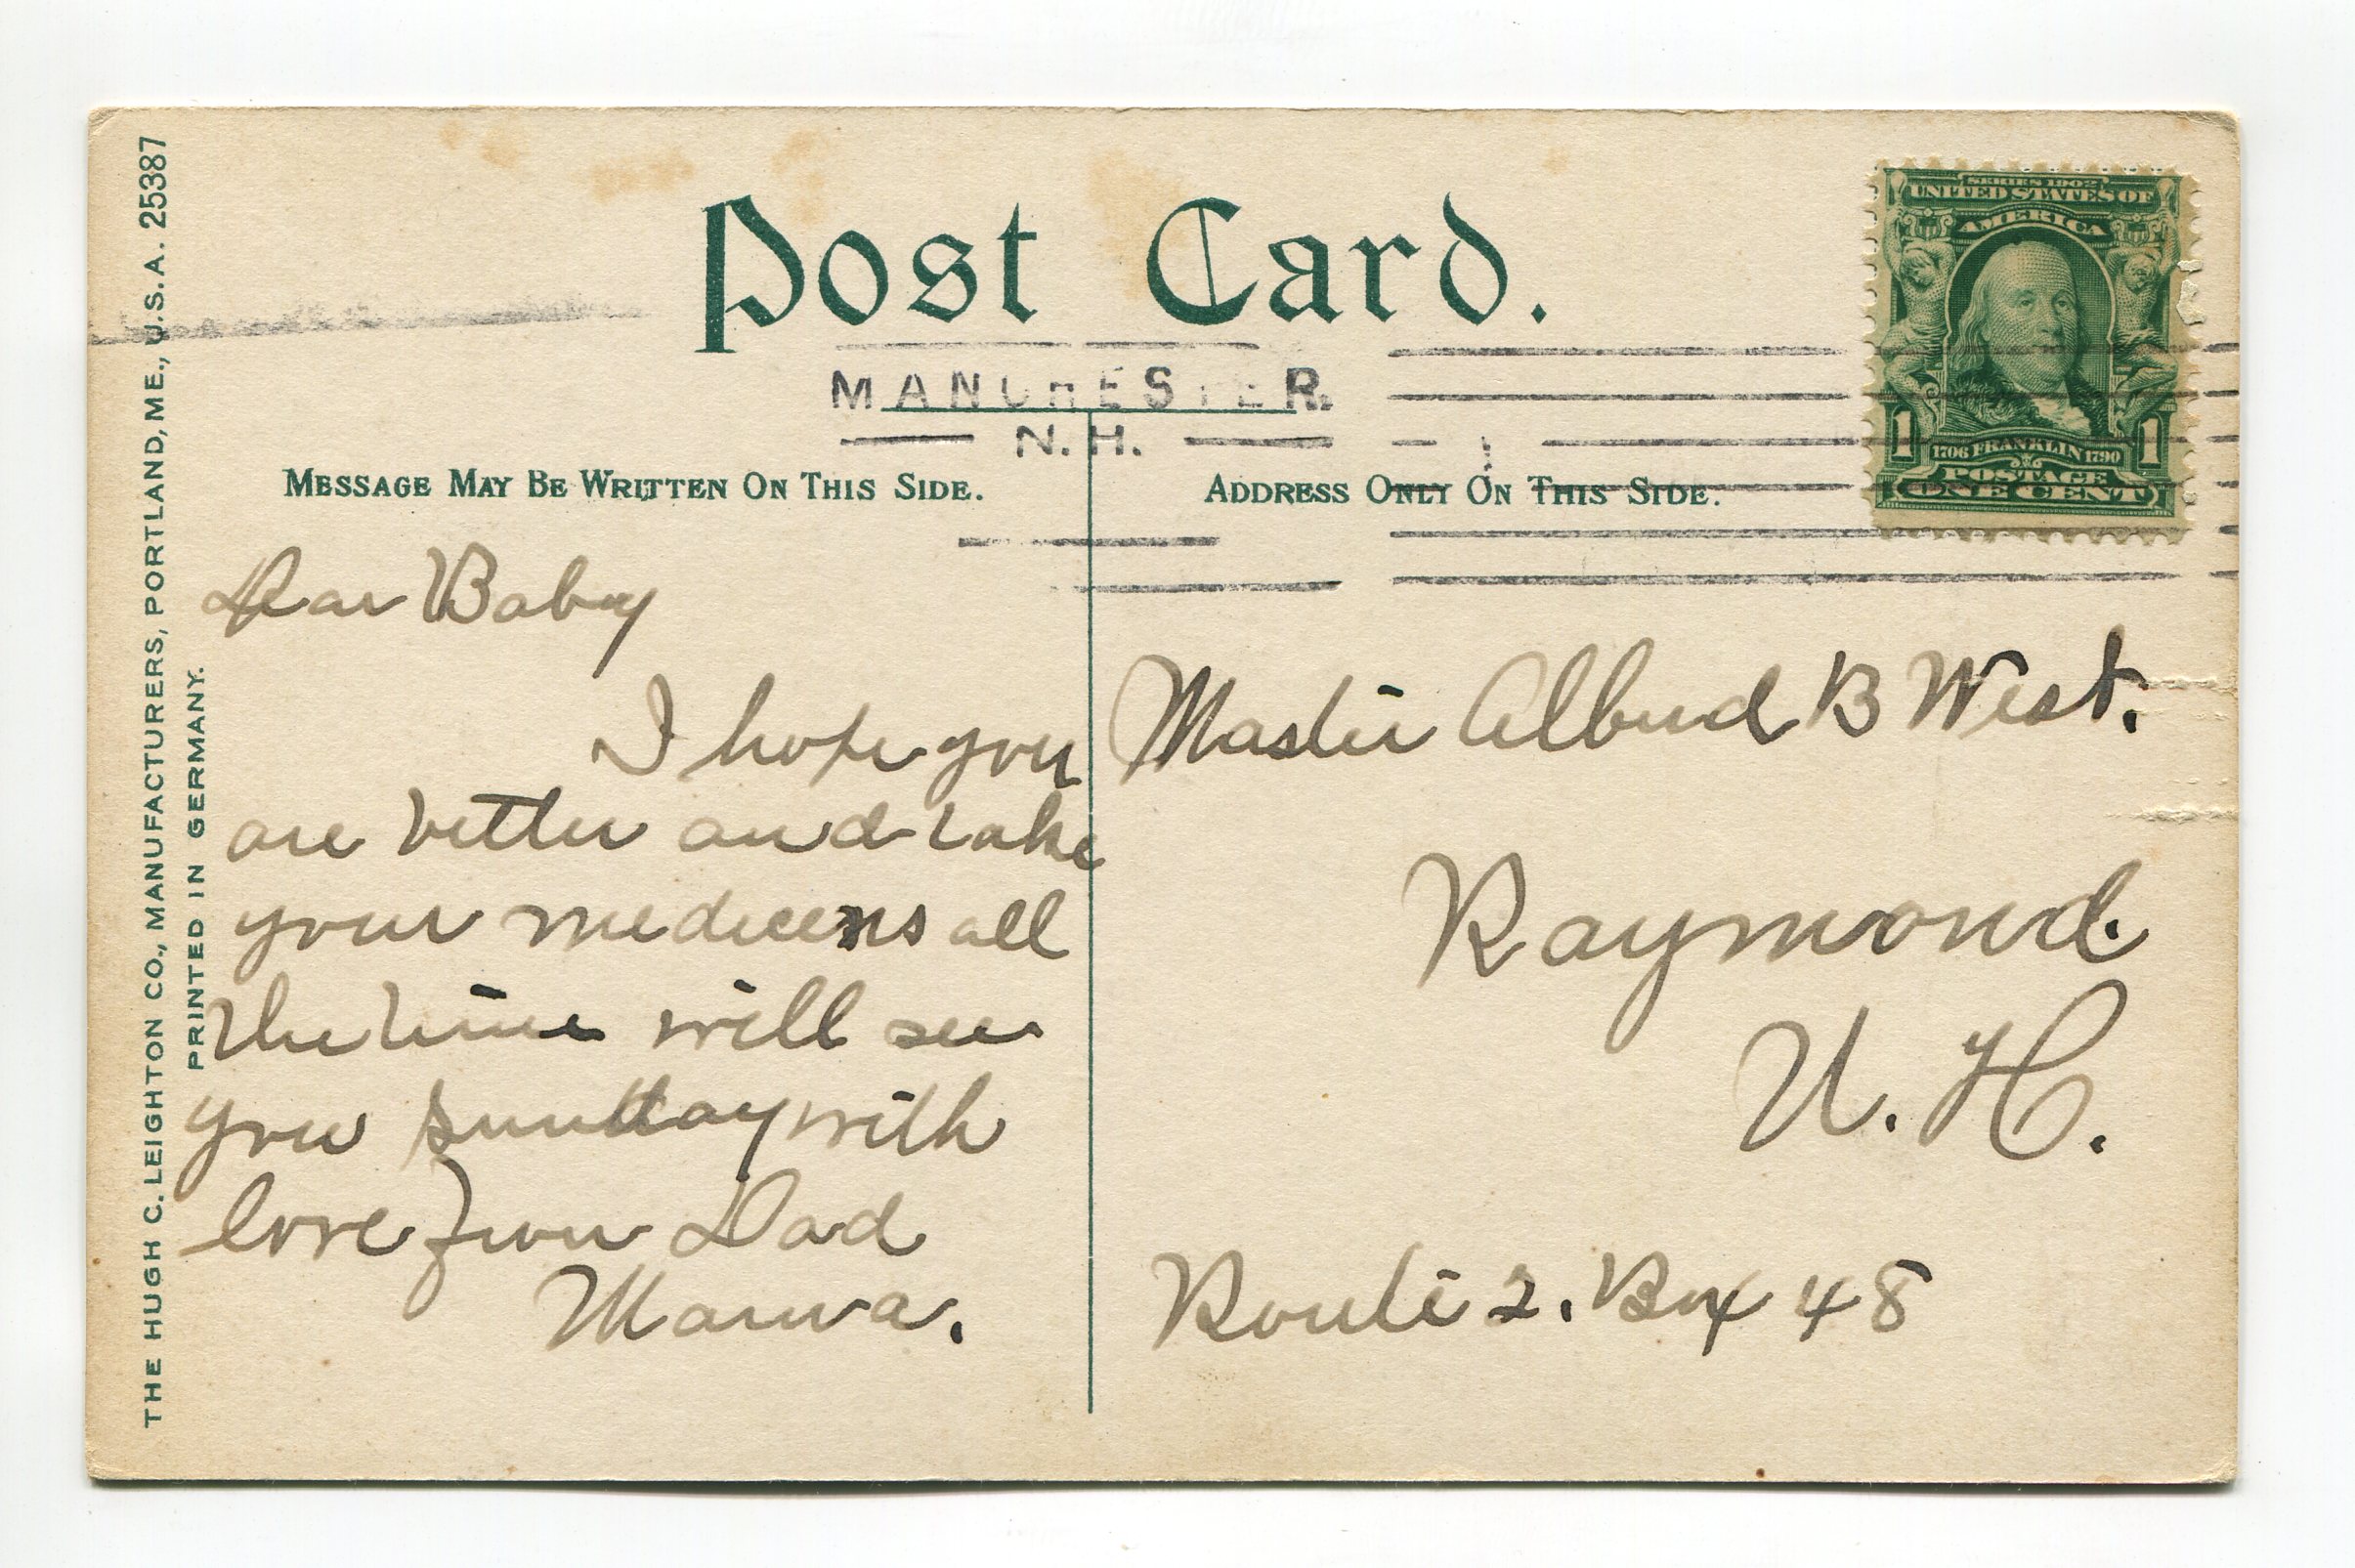 THE HUGH C. LEIGHTON CO., MANUFACTURERS, PORTLAND, ME., U.S.A. 25387
PRINTED IN GERMANY.
Post Card.
SERIES 1902
UNITED STATES OF
AMERICA
1 1
1706 FRANKLIN 1790
POSTAGE
ONE CENT
MANCHESTER.
N.H.
MESSAGE MAY BE WRITTEN ON THIS SIDE.
ADDRESS ONLY ON THIS SIDE.
Dear Baby
I hope you
are better and take
your medicens all
the time will see
you sunday with
love from Dad
Mama.
Master B West.
Raymond.
N. H.
Route 2. Box 48